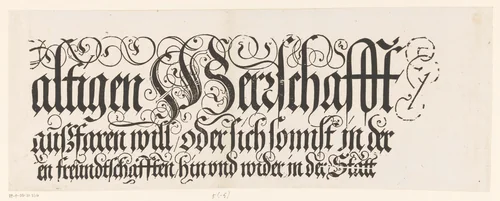 altigen Herrschafft
außfaren will / oder sich sonnst in der
en freundtschafften / hin vnd wider in der Statt